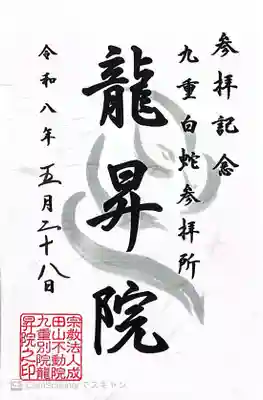 参拝記念
九重白蛇参拝所
龍昇院
令和八年五月二十八日
宗教法人成
田山不動院
九重別院龍
昇院之印
CamScanner でスキャン